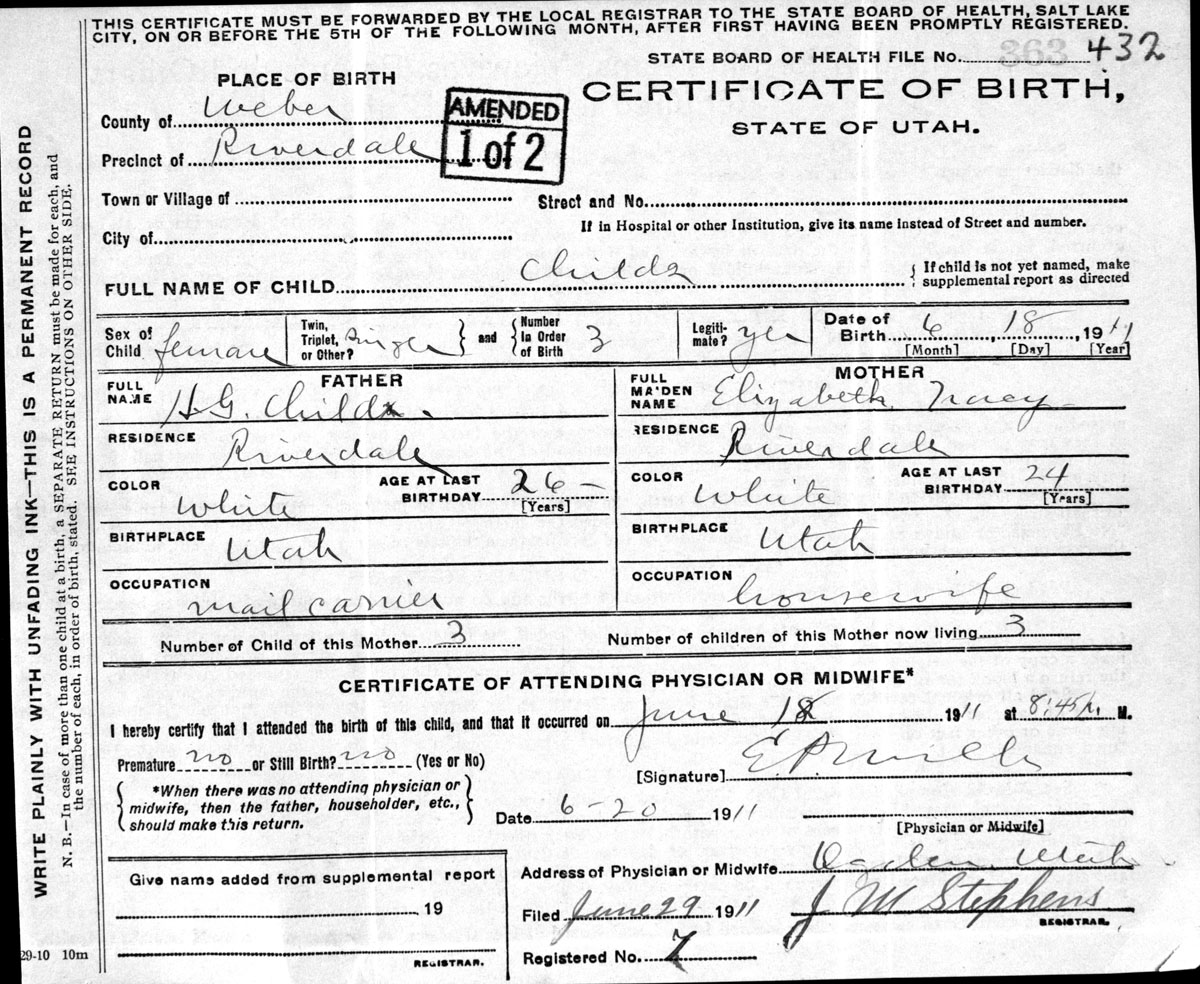 THIS CERTIFICATE MUST BE FORWARDED BY THE LOCAL REGISTRAR TO THE STATE BOARD OF HEALTH, SALT LAKE
CITY, ON OR BEFORE THE 5TH OF THE FOLLOWING MONTH, AFTER FIRST HAVING BEEN PROMPTLY REGISTERED.
STATE BOARD OF HEALTH FILE No. 363 432
PLACE OF BIRTH
CERTIFICATE OF BIRTH,
STATE OF UTAH.
County of Weber
AMENDED
1 of 2
Precinct of Riverdale
Town or Village of
Street and No.
If in Hospital or other Institution, give its name instead of Street and number.
City of
FULL NAME OF CHILD Childs
If child is not yet named, make
supplemental report as directed
Sex of Child female
Twin, Triplet, or Other? Single
and
Number in Order of Birth 3
Legiti-mate? yes
Date of Birth 6, 18, 1911
[Month] [Day] [Year]
FATHER
FULL NAME H.G. Childs.
RESIDENCE Riverdale
COLOR White
AGE AT LAST BIRTHDAY 26 –
[Years]
BIRTHPLACE Utah
OCCUPATION mail carrier
MOTHER
FULL MAIDEN NAME Elizabeth Tracy
RESIDENCE Riverdale
COLOR White
AGE AT LAST BIRTHDAY 24
[Years]
BIRTHPLACE Utah
OCCUPATION housewife
Number of Child of this Mother 3
Number of children of this Mother now living 3
CERTIFICATE OF ATTENDING PHYSICIAN OR MIDWIFE*
I hereby certify that I attended the birth of this child, and that it occurred on June 18 1911 at 8:45 P. M.
Premature no or Still Birth? no (Yes or No)
[Signature]
*When there was no attending physician or
midwife, then the father, householder, etc.,
should make this return.
Date 6-20 1911
[Physician or Midwife]
Give name added from supplemental report
19
REGISTRAR.
Address of Physician or Midwife Ogden Utah
Filed June 29 1911
J M Stephens
REGISTRAR.
Registered No. 7
29-10 10m
WRITE PLAINLY WITH UNFADING INK—THIS IS A PERMANENT RECORD
N. B.—In case of more than one child at a birth, a SEPARATE RETURN must be made for each, and
the number of each, in order of birth, stated. SEE INSTRUCTIONS ON OTHER SIDE.